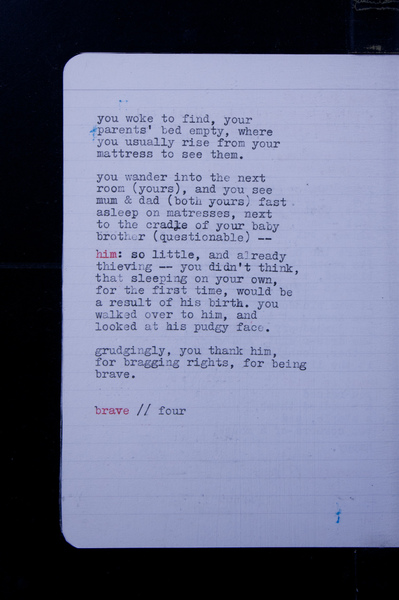 you woke to find, your
parents' bed empty, where
you usually rise from your
mattress to see them.
you wander into the next
room (yours), and you see
mum & dad (both yours) fast
asleep on matresses, next
to the cradle of your baby
brother (questionable) --
him: so little, and already
thieving -- you didn't think,
that sleeping on your own,
for the first time, would be
a result of his birth. you
walked over to him, and
looked at his pudgy face.
grudgingly, you thank him,
for bragging rights, for being
brave.
brave // four